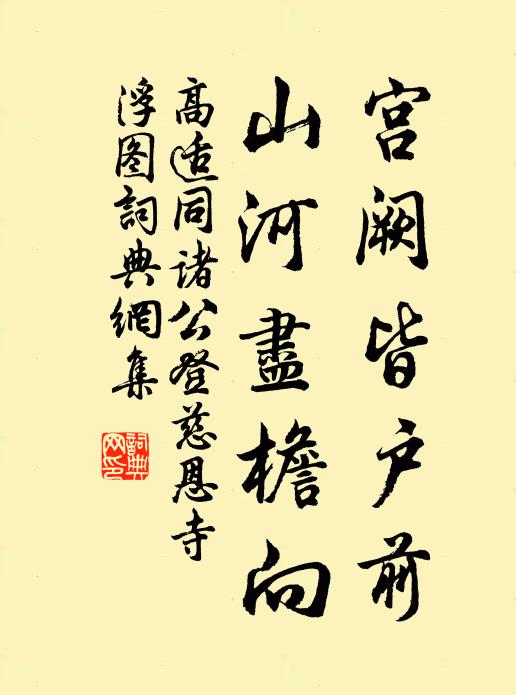 宫阙皆户前
山河盡檐向
高适同诸公登慈恩寺
浮图詞典網集
詞典网印